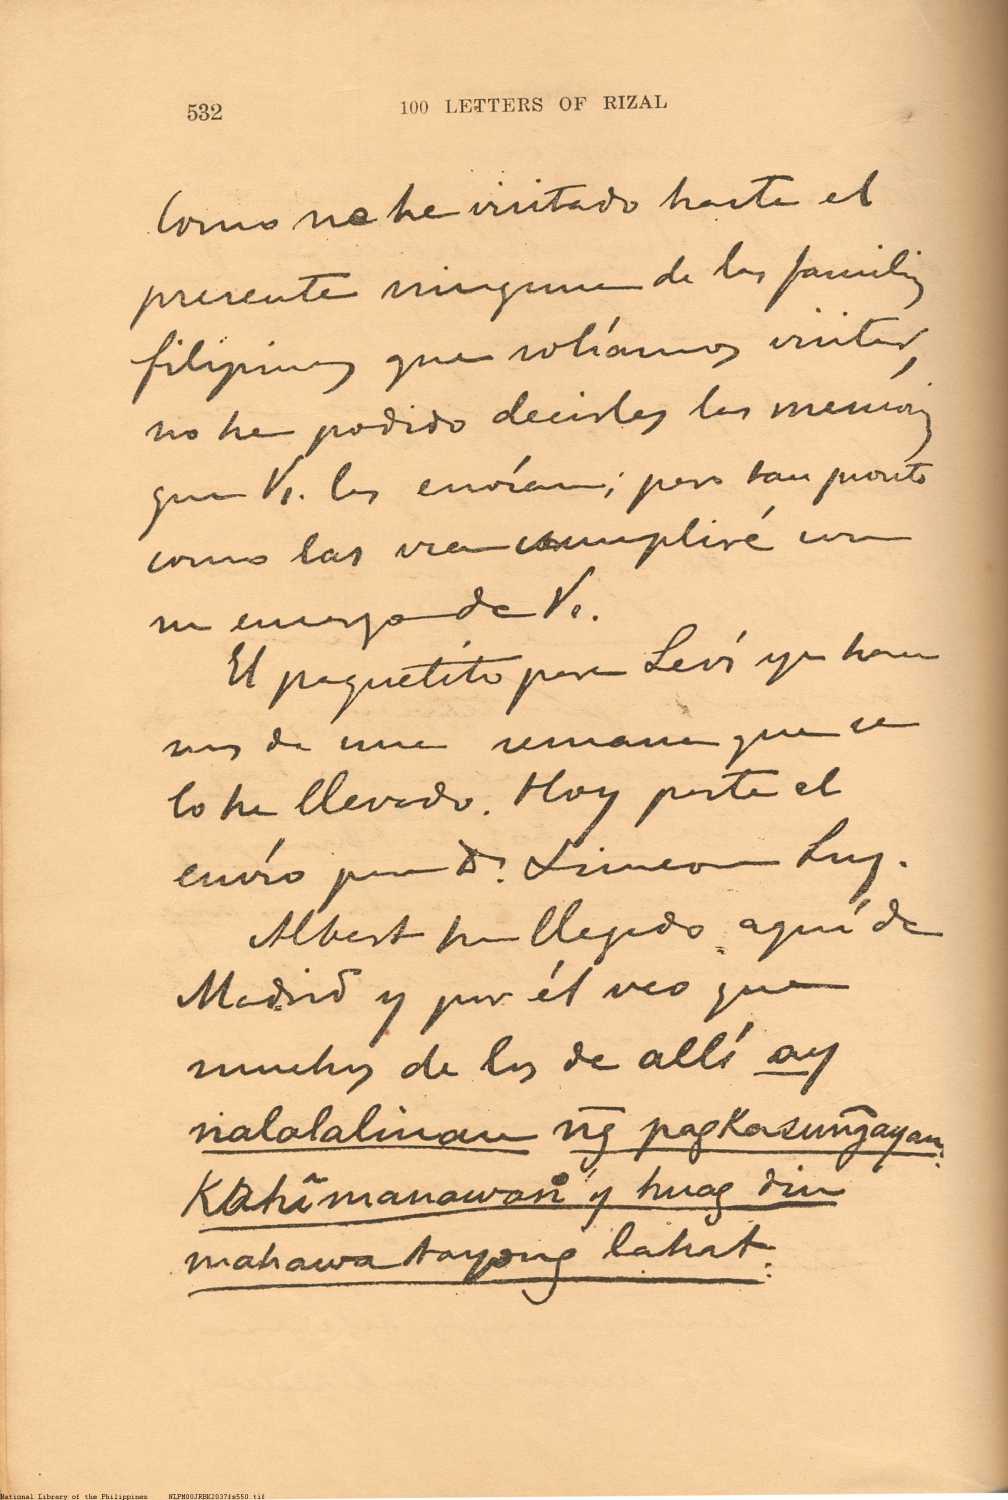 532 100 LETTERS OF RIZAL
Como no he visitado hasta el
presente ninguna de las familias
filipinas que solíamos visitar,
no he podido decirles las memorias
que V. les envían; pero tan pronto
como las vea cumpliré con
su encargo de V.
El paquetito para Leví ya hace
mas de una semana que se
lo he llevado. Hoy parte el
envío para D. Simeon
Albert ha llegado aquí de
Madrid y por él veo que
muchos de los de allí ay
nalalalinau ng̃ pagkasung̃ayan.
Kahimanawari'y huag din
mahawa tayong lahat.
National Library of the Philippines NLPM00JRBK2037fs550.tif